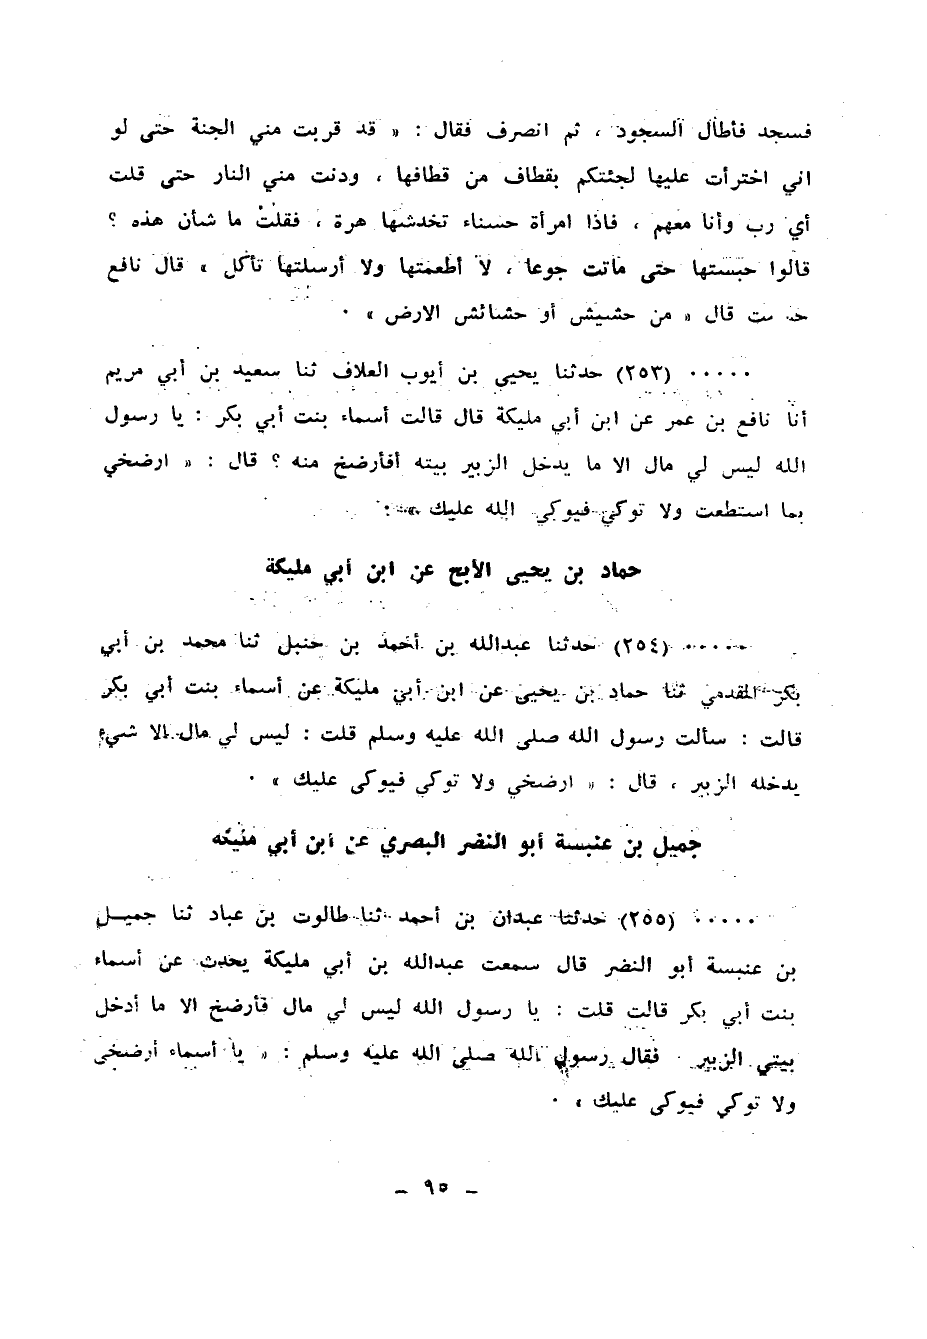 فسجد فأطال السجود ، ثم انصرف فقال : « قد قربت مني الجنة حتى لو
اني اخترأت عليها لجئتكم بقطاف من قطافها ، ودنت مني النار حتى قلت
أي رب وأنا معهم ، فاذا امرأة حسناء تخدشها هرة ، فقلت ما شأن هذه ؟
قالوا حبستها حتى ماتت جوعا ، لا أطعمتها ولا أرسلتها تأكل » قال نافع
قال « من حشيش أو حشائش الارض » ٠
٠٠٠٠٠ (٢٥٣) حدثنا يحيى بن أيوب العلاف ثنا سعيد بن أبي مريم
أنا نافع بن عمر عن ابن أبي مليكة قال قالت أسماء بنت أبي بكر : يا رسول
الله ليس لي مال الا ما يدخل الزبير بيته أفأرضخ منه ؟ قال : « ارضخي
بما استطعت ولا توكي فيوكي الله عليك » :
حماد بن يحيى الأبح عن ابن أبي مليكة
٠٠٠٠٠ (٢٥٤) حدثنا عبدالله بن أحمد بن حنبل ثنا محمد بن أبي
بكر المقدمي ثنا حماد بن يحيى عن ابن أبي مليكة عن أسماء بنت أبي بكر
قالت : سألت رسول الله صلى الله عليه وسلم قلت : ليس لي مال الا شيء
يدخله الزبير ، قال : « ارضخي ولا توكي فيوكى عليك » ٠
جميل بن عنبسة أبو النضر البصري عن ابن أبي مليكه
٠٠٠٠٠ (٢٥٥) حدثنا عبدان بن أحمد ثنا طالوت بن عباد ثنا جميـل
بن عنبسة أبو النضر قال سمعت عبدالله بن أبي مليكة يحدث عن أسماء
بنت أبي بكر قالت قلت : يا رسول الله ليس لي مال فأرضخ الا ما أدخل
بيتي الزبير ٠ فقال رسول الله صلى الله عليه وسلم : « يا أسماء أرضخي
ولا توكي فيوكى عليك » ٠
ـ ٩٥ ـ